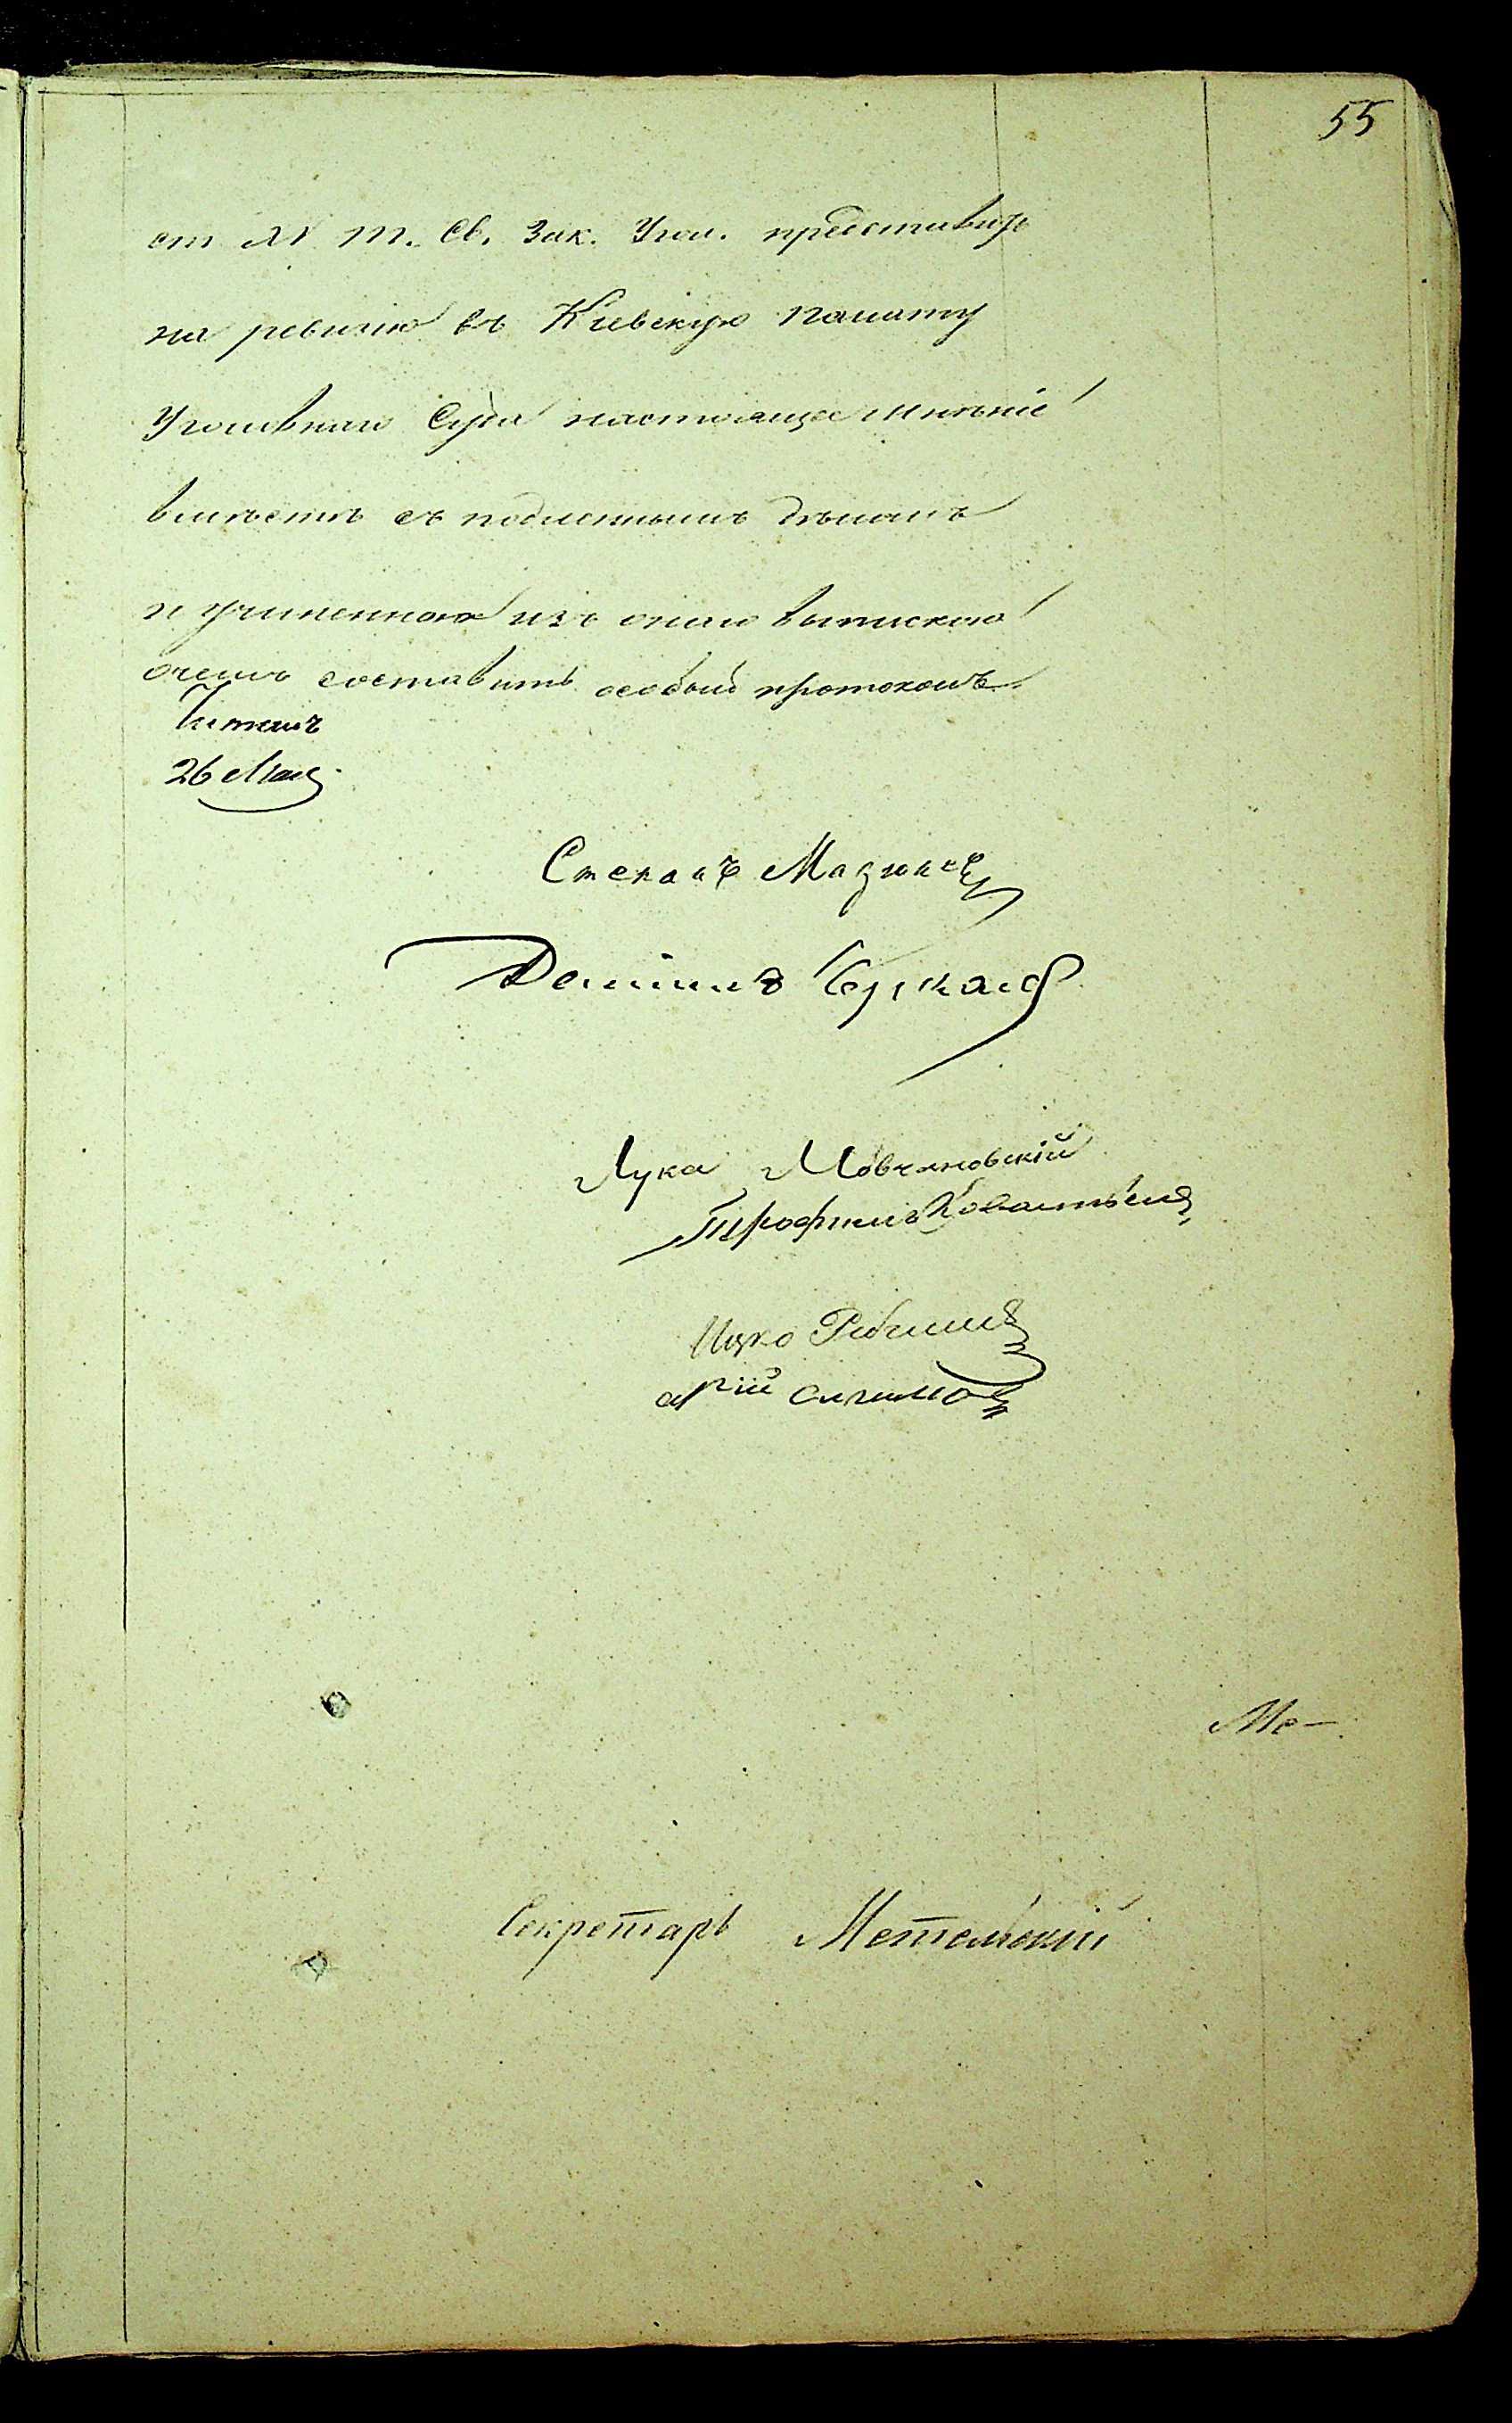 55
ст XV т. Св. Зак. Угол. представить
на ревизію въ Кіевскую Палату
Уголовнаго Суда настоящее мнѣніе
вмѣстѣ съ подленнымъ дѣломъ
и учиненною изъ онаго выпискою
о чемъ составить особый протоколъ.
26 Мая
Степанъ
Лука Мовчановскій
Трофимъ
Ицко
Ме-
Секретарь Метельскій